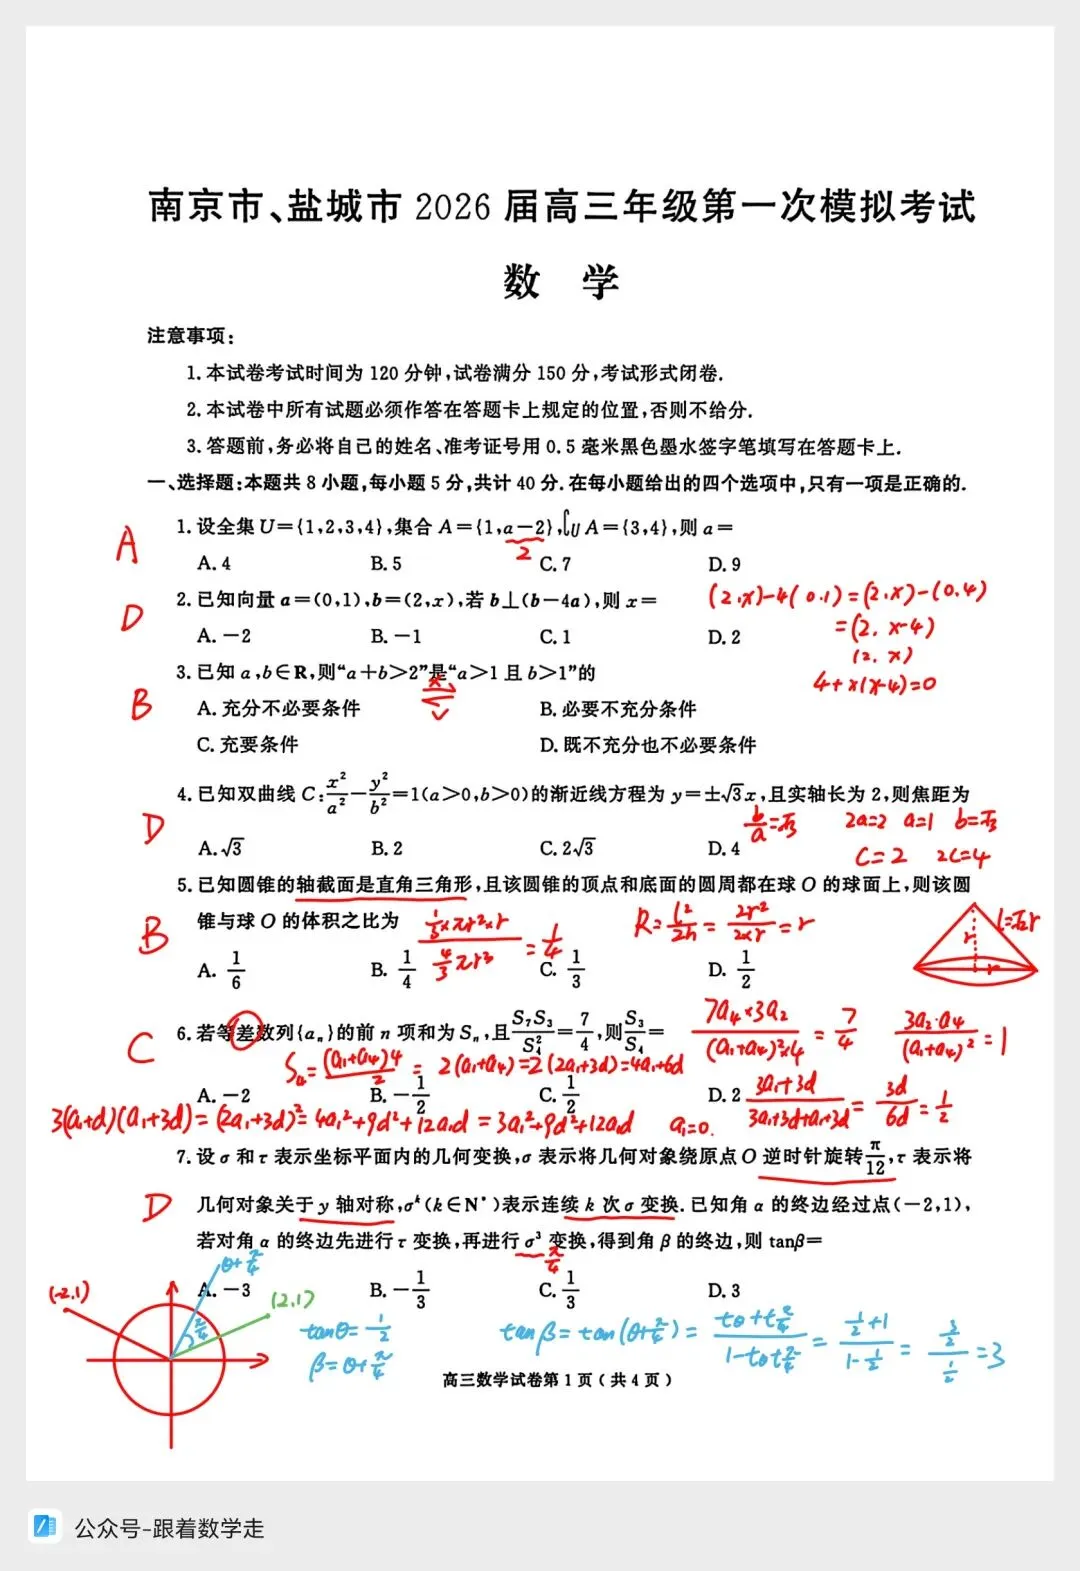 南京市、盐城市 2026 届高三年级第一次模拟考试
数 学
注意事项:
1. 本试卷考试时间为 120 分钟,试卷满分 150 分,考试形式闭卷.
2. 本试卷中所有试题必须作答在答题卡上规定的位置,否则不给分.
3. 答题前,务必将自己的姓名、准考证号用 0.5 毫米黑色墨水签字笔填写在答题卡上.
一、选择题:本题共 8 小题,每小题 5 分,共计 40 分. 在每小题给出的四个选项中,只有一项是正确的.
A
1. 设全集 U={1,2,3,4},集合 A={1,a−2},∁UA={3,4},则 a=
2
A. 4 B. 5 C. 7 D. 9
D
2. 已知向量 a=(0,1),b=(2,x),若 b⊥(b−4a),则 x=
(2.x)-4(0.1)=(2.x)-(0.4)
=(2. x-4)
(2. x)
4+x(x-4)=0
A. −2 B. −1 C. 1 D. 2
B
3. 已知 a,b∈R,则“a+b>2”是“a>1 且 b>1”的
A. 充分不必要条件 B. 必要不充分条件
C. 充要条件 D. 既不充分也不必要条件
D
4. 已知双曲线 C:x²/a²−y²/b²=1(a>0,b>0)的渐近线方程为 y=±√3x,且实轴长为 2,则焦距为
b/a=√3 2a=2 a=1 b=√3
c=2 2c=4
A. √3 B. 2 C. 2√3 D. 4
B
5. 已知圆锥的轴截面是直角三角形,且该圆锥的顶点和底面的圆周都在球 O 的球面上,则该圆
锥与球 O 的体积之比为
(1/3×πr²×r)/(4/3πr³)=1/4
R=l²/2h=2r²/2×r=r
l=√2r
r
r
A. 1/6 B. 1/4 C. 1/3 D. 1/2
C
6. 若等差数列{aₙ}的前 n 项和为 Sₙ,且S₇S₃/S₄²=7/4,则S₃/S₄=
7a₄×3a₂/(a₁+a₄)²×4=7/4 3a₂·a₄/(a₁+a₄)²=1
S₄=(a₁+a₄)4/2=2(a₁+a₄)=2(2a₁+3d)=4a₁+6d
A. −2 B. −1/2 C. 1/2 D. 2
3a₁+3d/3a₁+3d+a₁+3d=3d/6d=1/2
3(a₁+d)(a₁+3d)=(2a₁+3d)²=4a₁²+9d²+12a₁d=3a₁²+9d²+12a₁d a₁=0.
D
7. 设 σ 和 τ 表示坐标平面内的几何变换,σ 表示将几何对象绕原点 O 逆时针旋转π/12,τ 表示将
几何对象关于 y 轴对称,σᵏ(k∈N*)表示连续 k 次 σ 变换. 已知角 α 的终边经过点(−2,1),
若对角 α 的终边先进行 τ 变换,再进行 σ³ 变换,得到角 β 的终边,则 tanβ=
π/4
A. −3 B. −1/3 C. 1/3 D. 3
(-2,1)
θ+π/4
(2,1)
π/4
tanθ=1/2
β=θ+π/4
tanβ=tan(θ+π/4)=tθ+tπ/4/1-tθtπ/4=1/2+1/1-1/2=3/2/1/2=3
高三数学试卷第 1 页(共 4 页)
公众号-跟着数学走